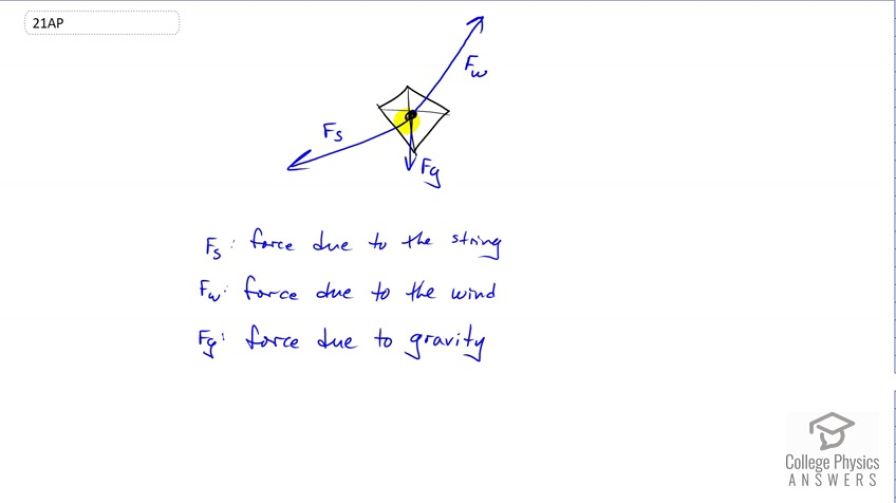 21AP
Fw
Fs
Fg
Fs: force due to the string
Fw: force due to the wind
Fg: force due to gravity
College Physics
ANSWERS